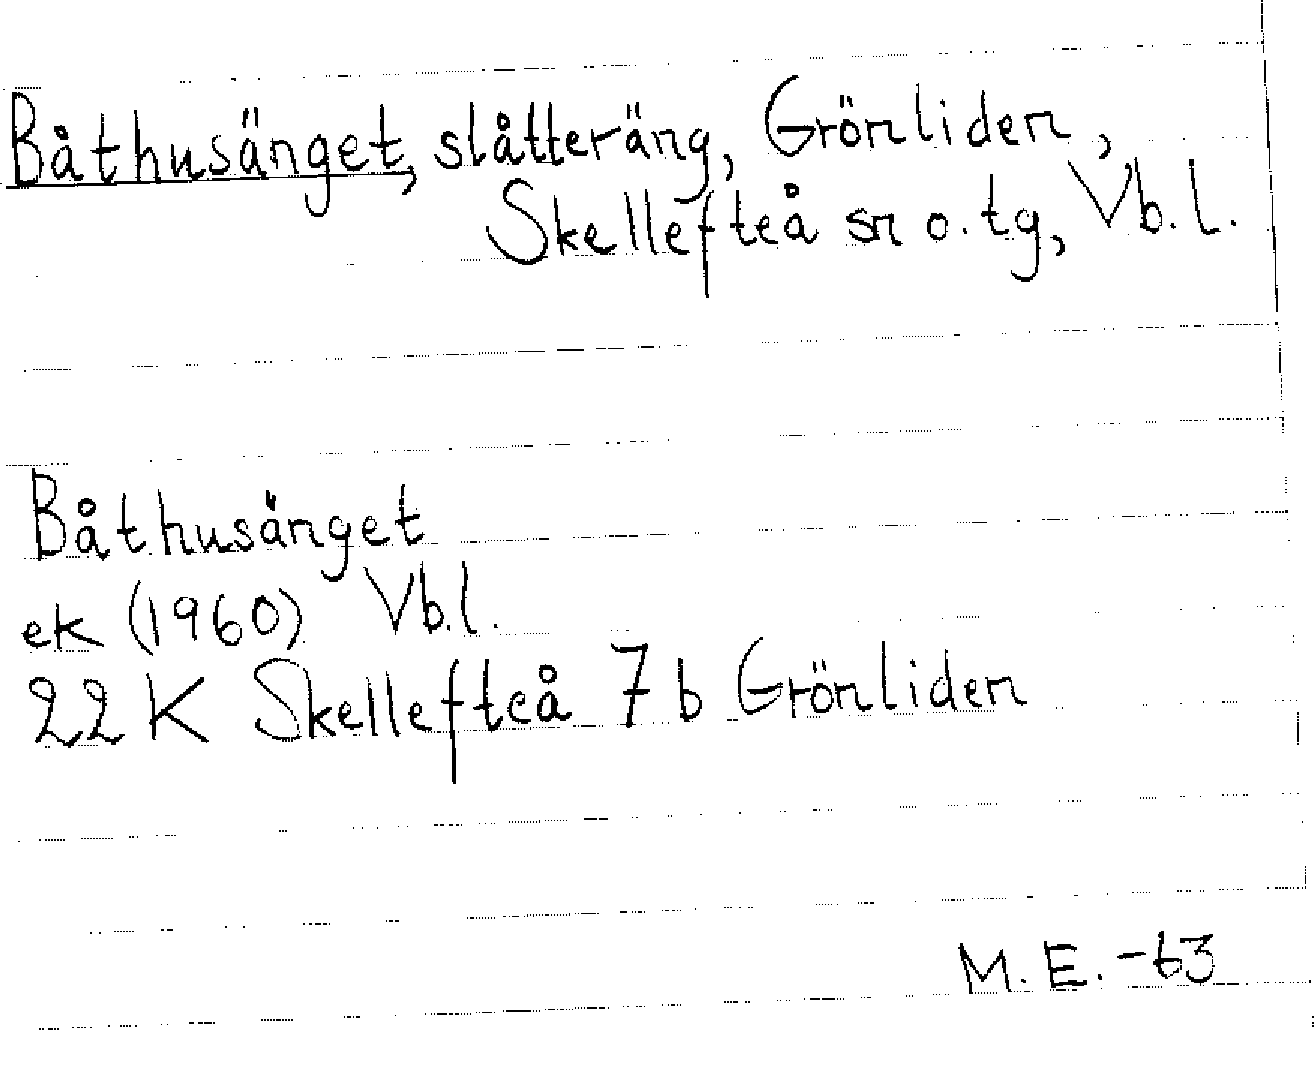 Båthusänget, slåtteräng, Grönliden,
Skellefteå sn o. tg, Vb.l.
Båthusänget
ek (1960) Vb.l.
22 K Skellefteå 7 b Grönliden
M.E. -63